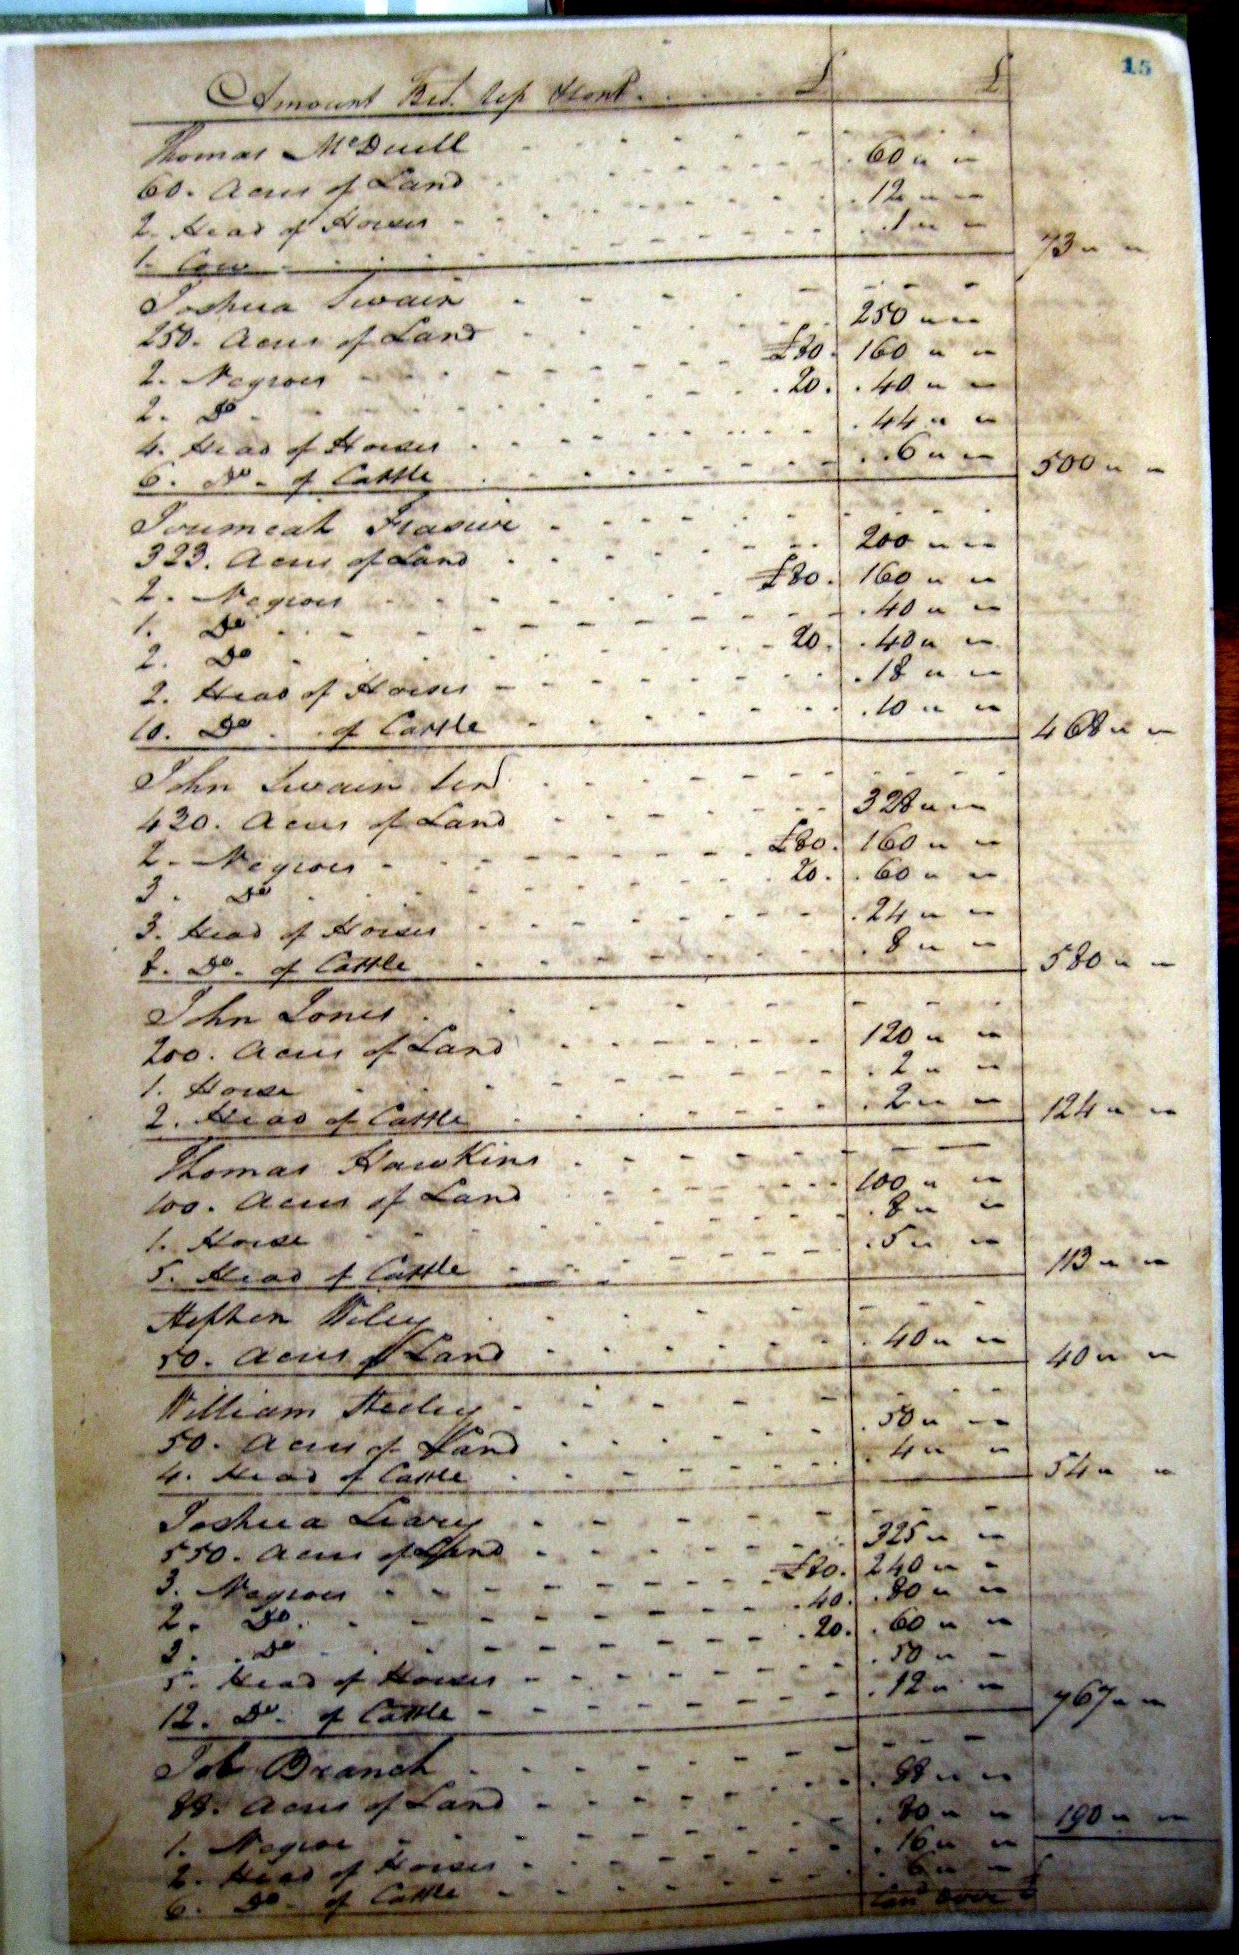 15
Amount Bro.t Up £ £
Thomas McDuell
60. Acres of Land 60 " "
2. Head of Horses 12 " "
1. Cow 1 " " 73 " "
Joshua Swain
250. Acres of Land 250 " "
2. Negroes £80. 160 " "
2. Do 20. 40 " "
4. Head of Horses 44 " "
6. Do. of Cattle 6 " " 500 " "
Jeremeah Frasure
323. Acres of Land 200 " "
2. Negroes £80. 160 " "
1. Do 40 " "
2. Do 20. 40 " "
2. Head of Horses 18 " "
10. Do. of Cattle 10 " " 468 " "
John Swain Senr
420. Acres of Land 328 " "
2. Negroes £80. 160 " "
3. Do 20. 60 " "
3. Head of Horses 24 " "
8. Do. of Cattle 8 " " 580 " "
John Jones
200. Acres of Land 120 " "
1. Horse 2 " "
2. Head of Cattle 2 " " 124 " "
Thomas Hawkins
100. Acres of Land 100 " "
1. Horse 8 " "
5. Head of Cattle 5 " " 113 " "
Stephen Wiley
50. Acres of Land 40 " " 40 " "
William Steeley
50. Acres of Land 50 " "
4. Head of Cattle 4 " " 54 " "
Joshua Leary
550. Acres of Land 325 " "
3. Negroes £80. 240 " "
2. Do. 40. 80 " "
3. Do 20. 60 " "
5. Head of Horses 50 " "
12. Do. of Cattle 12 " " 767 " "
Job Branch
88. Acres of Land 88 " "
1. Negroe 80 " "
2. Head of Horses 16 " "
6. Do. of Cattle 6 " " 190 " "
Card over £